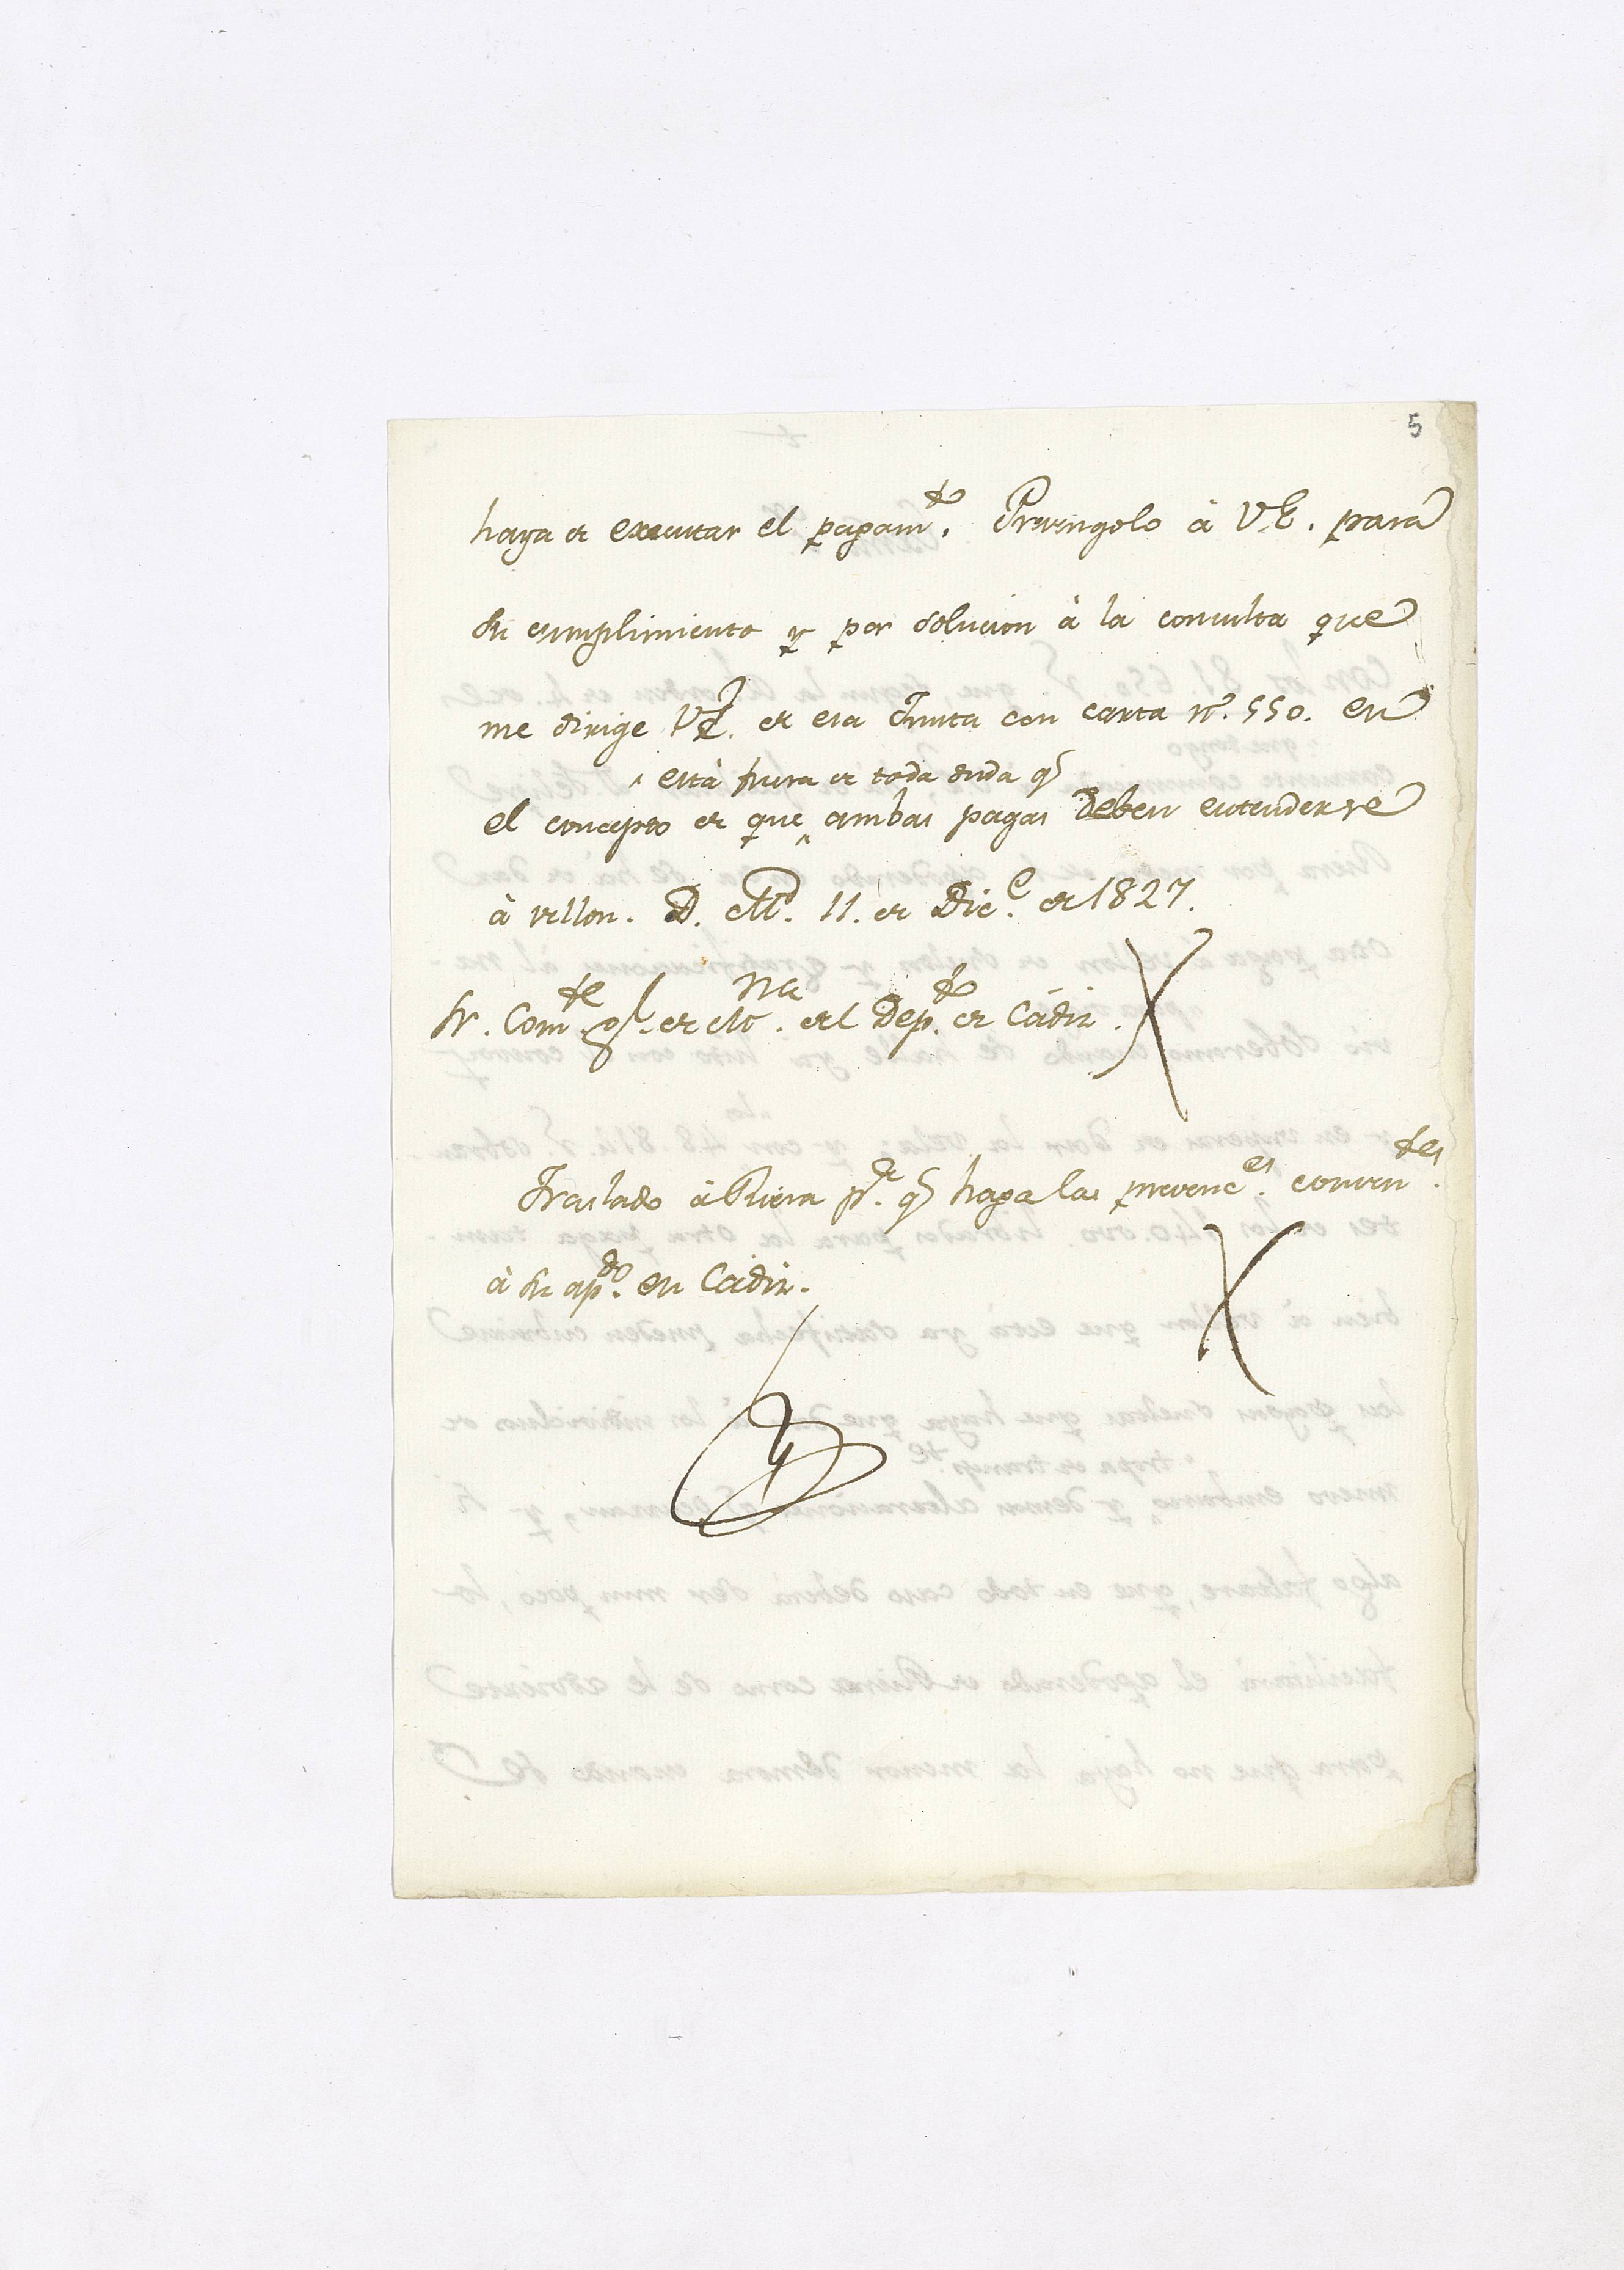 5
haya de executar el pagam.to Prevengolo à V.E. para
su cumplimiento y por solucion à la consulta que
me dirige V.E. de esa Junta con carta n.º 550. en
^ está fuera de toda duda q.e
el concepto de que ^ ambas pagas deben entenderse
à vellon. D. M.d 11. de Dic.e de 1827.
Sr. Com.te g.l de M.na del Dep.to de Cádiz.
Traslado à Riera p.a q.e haga las prevenc.es conven.tes
à su ap.do en Cádiz.